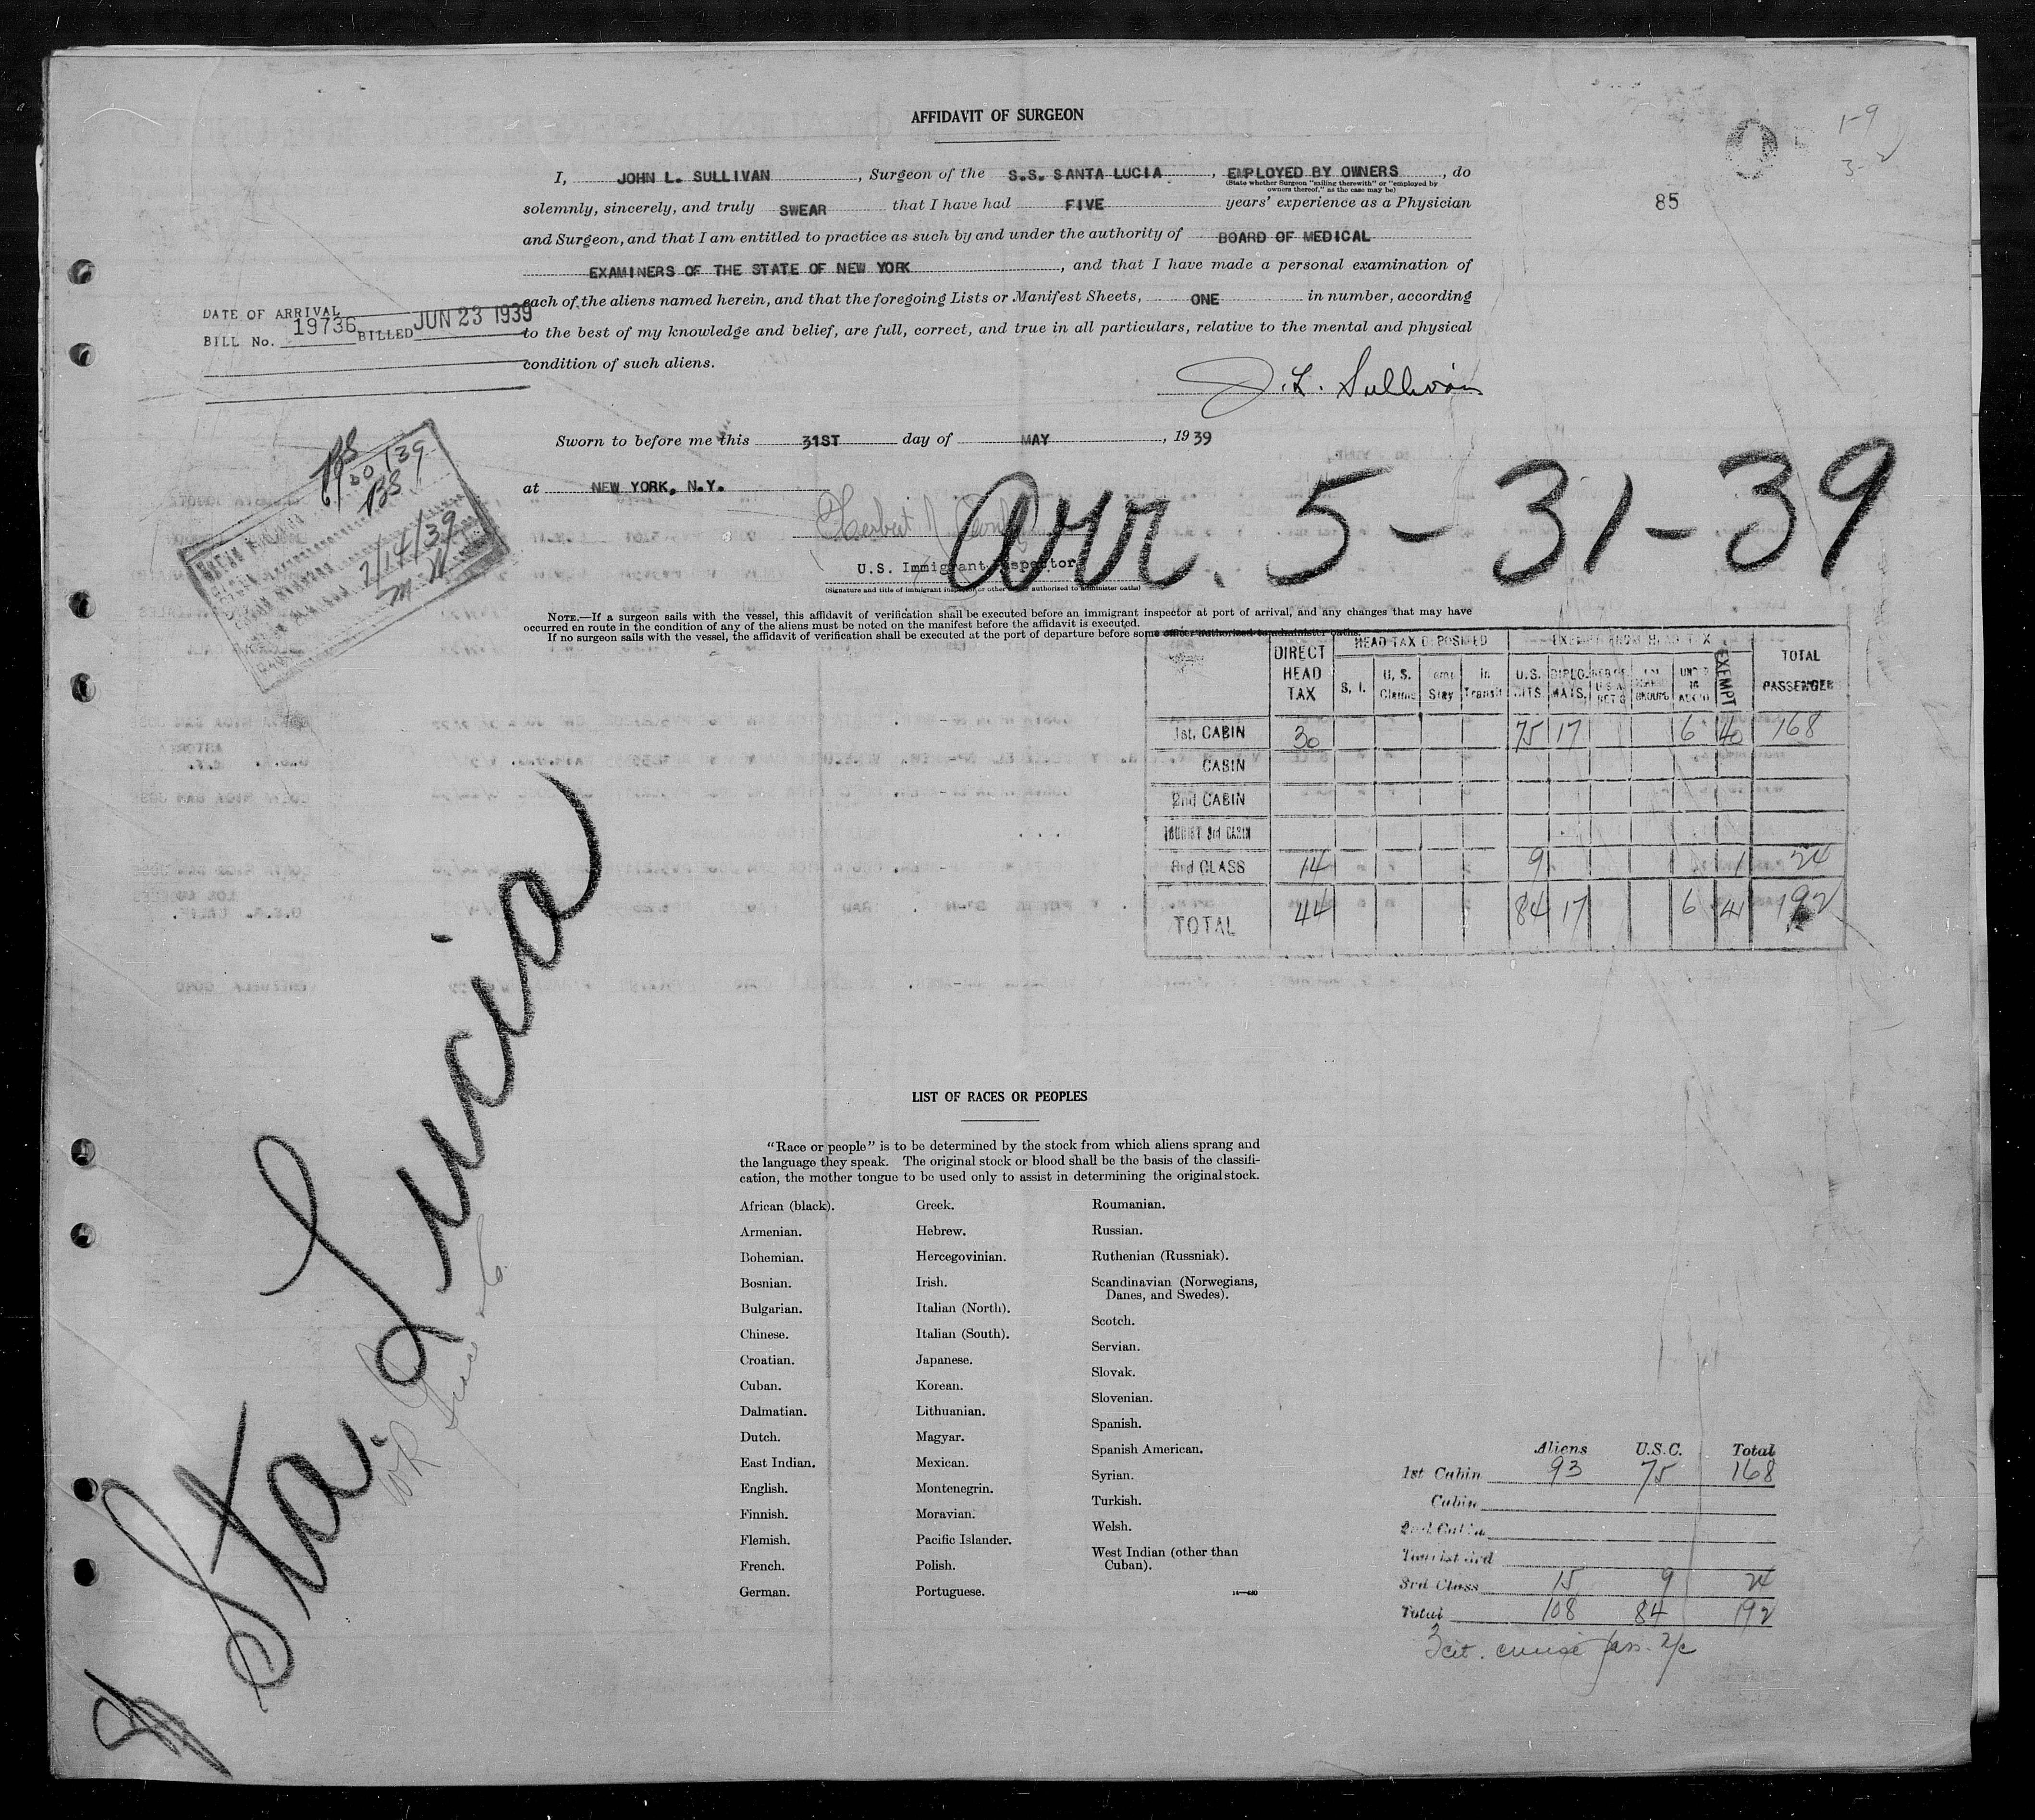 AFFIDAVIT OF SURGEON
1-9
3-2
I, JOHN L. SULLIVAN, Surgeon of the S.S. SANTA LUCIA, EMPLOYED BY OWNERS, do
(State whether Surgeon "sailing therewith" or "employed by
owners thereof," as the case may be)
85
solemnly, sincerely, and truly SWEAR that I have had FIVE years' experience as a Physician
and Surgeon, and that I am entitled to practice as such by and under the authority of BOARD OF MEDICAL
EXAMINERS OF THE STATE OF NEW YORK, and that I have made a personal examination of
each of the aliens named herein, and that the foregoing Lists or Manifest Sheets, ONE in number, according
to the best of my knowledge and belief, are full, correct, and true in all particulars, relative to the mental and physical
condition of such aliens.
DATE OF ARRIVAL
BILL No. 19736 BILLED JUN 23 1939
J. L. Sullivan
Sworn to before me this 31ST day of MAY, 1939
at NEW YORK, N.Y.
Arr. 5-31-39
Herbert
U.S. Immigrant Inspector
(Signature and title of immigrant inspector or other officer authorized to administer oaths)
BS
6/30/39
BS
7/14/39
NOTE.—If a surgeon sails with the vessel, this affidavit of verification shall be executed before an immigrant inspector at port of arrival, and any changes that may have
occurred en route in the condition of any of the aliens must be noted on the manifest before the affidavit is executed.
If no surgeon sails with the vessel, the affidavit of verification shall be executed at the port of departure before some officer authorized to administer oaths.
DIRECT HEAD TAX HEAD TAX DEPOSITED EXEMPT FROM HEAD TAX EXEMPT TOTAL PASSENGERS
S. I. U. S. Claims Temp Stay In Transit U.S. CITS. DIPLO. MATS.
1st. CABIN 30 75 17 6 40 168
CABIN
2nd CABIN
TOURIST 3rd CABIN
3rd CLASS 14 9 1 24
TOTAL 44 84 17 6 41 192
Sta. Lucia
LIST OF RACES OR PEOPLES
"Race or people" is to be determined by the stock from which aliens sprang and
the language they speak. The original stock or blood shall be the basis of the classifi-
cation, the mother tongue to be used only to assist in determining the original stock.
African (black).
Armenian.
Bohemian.
Bosnian.
Bulgarian.
Chinese.
Croatian.
Cuban.
Dalmatian.
Dutch.
East Indian.
English.
Finnish.
Flemish.
French.
German.
Greek.
Hebrew.
Hercegovinian.
Irish.
Italian (North).
Italian (South).
Japanese.
Korean.
Lithuanian.
Magyar.
Mexican.
Montenegrin.
Moravian.
Pacific Islander.
Polish.
Portuguese.
Roumanian.
Russian.
Ruthenian (Russniak).
Scandinavian (Norwegians,
Danes, and Swedes).
Scotch.
Servian.
Slovak.
Slovenian.
Spanish.
Spanish American.
Syrian.
Turkish.
Welsh.
West Indian (other than
Cuban).
Aliens U.S.C. Total
1st Cabin 93 75 168
Cabin
2nd Cabin
Tourist 3rd
3rd Class 15 9 24
Total 108 84 192
3 cit. cruise pass. 2/c